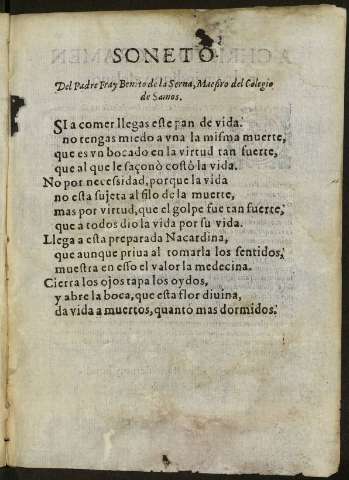 SONETO
Del Padre Fray Benito de la Serna, Maestro del Colegio
de Samos.
SI a comer llegas este pan de vida.
no tengas miedo a vna la misma muerte,
que es vn bocado en la virtud tan fuerte,
que al que le saçonò costò la vida.
No por necessidad, porque la vida
no esta sujeta al filo de la muerte,
mas por virtud, que el golpe fue tan fuerte,
que a todos dio la vida por su vida.
Llega a esta preparada Nacardina,
que aunque priua al tomarla los sentidos,
muestra en esso el valor la medecina.
Cierra los ojos tapa los oydos,
y abre la boca, que esta flor diuina,
da vida a muertos, quanto mas dormidos.